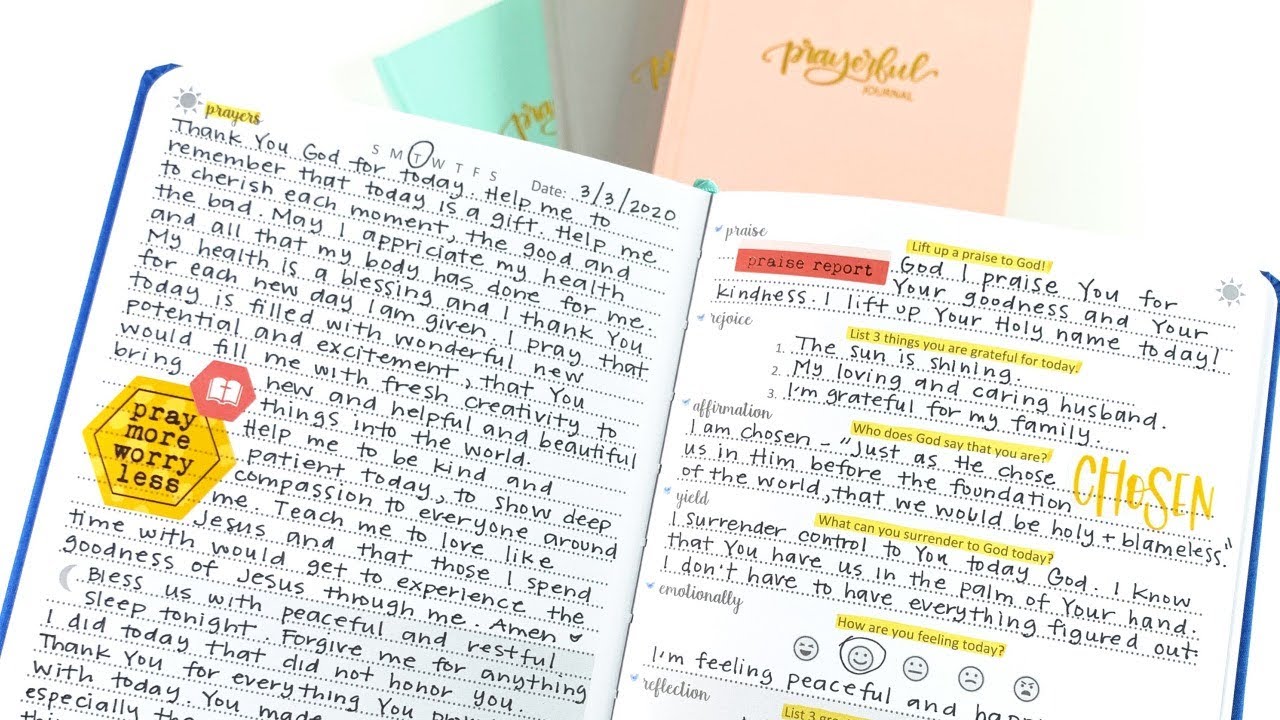 prayerful
JOURNAL
prayers
S M T W T F S
Date: 3/3/2020
Thank You God for today. Help me to
remember that today is a gift. Help me
to cherish each moment, the good and
the bad. May I appriciate my health
and all that my body has done for me.
My health is a blessing and I thank You
for each new day I am given. I pray that
today is filled with wonderful new
potential and excitement, that You
would fill me with fresh creativity to
bring new and helpful and beautiful
things into the world.
Help me to be kind and
patient today, to show deep
compassion to everyone around
me. Teach me to love like
Jesus and that those I spend
time with would get to experience the
goodness of Jesus through me. Amen
pray
more
worry
less
Bless us with peaceful and restful
sleep tonight. Forgive me for anything
I did today that did not honor you.
Thank You for everything You
with today. You made
especially the
praise
Lift up a praise to God!
praise report
God I praise You for
Your goodness and Your
kindness. I lift up Your Holy name today!
rejoice
List 3 things you are grateful for today.
1. The sun is shining.
2. My loving and caring husband.
3. I'm grateful for my family.
affirmation
Who does God say that you are?
I am chosen - "Just as He chose
us in Him before the foundation
of the world, that we would be holy + blameless."
CHOSEN
yield
What can you surrender to God today?
I surrender control to You today God. I know
that You have us in the palm of Your hand.
I don't have to have everything figured out.
emotionally
How are you feeling today?
I'm feeling peaceful and
reflection
List 3